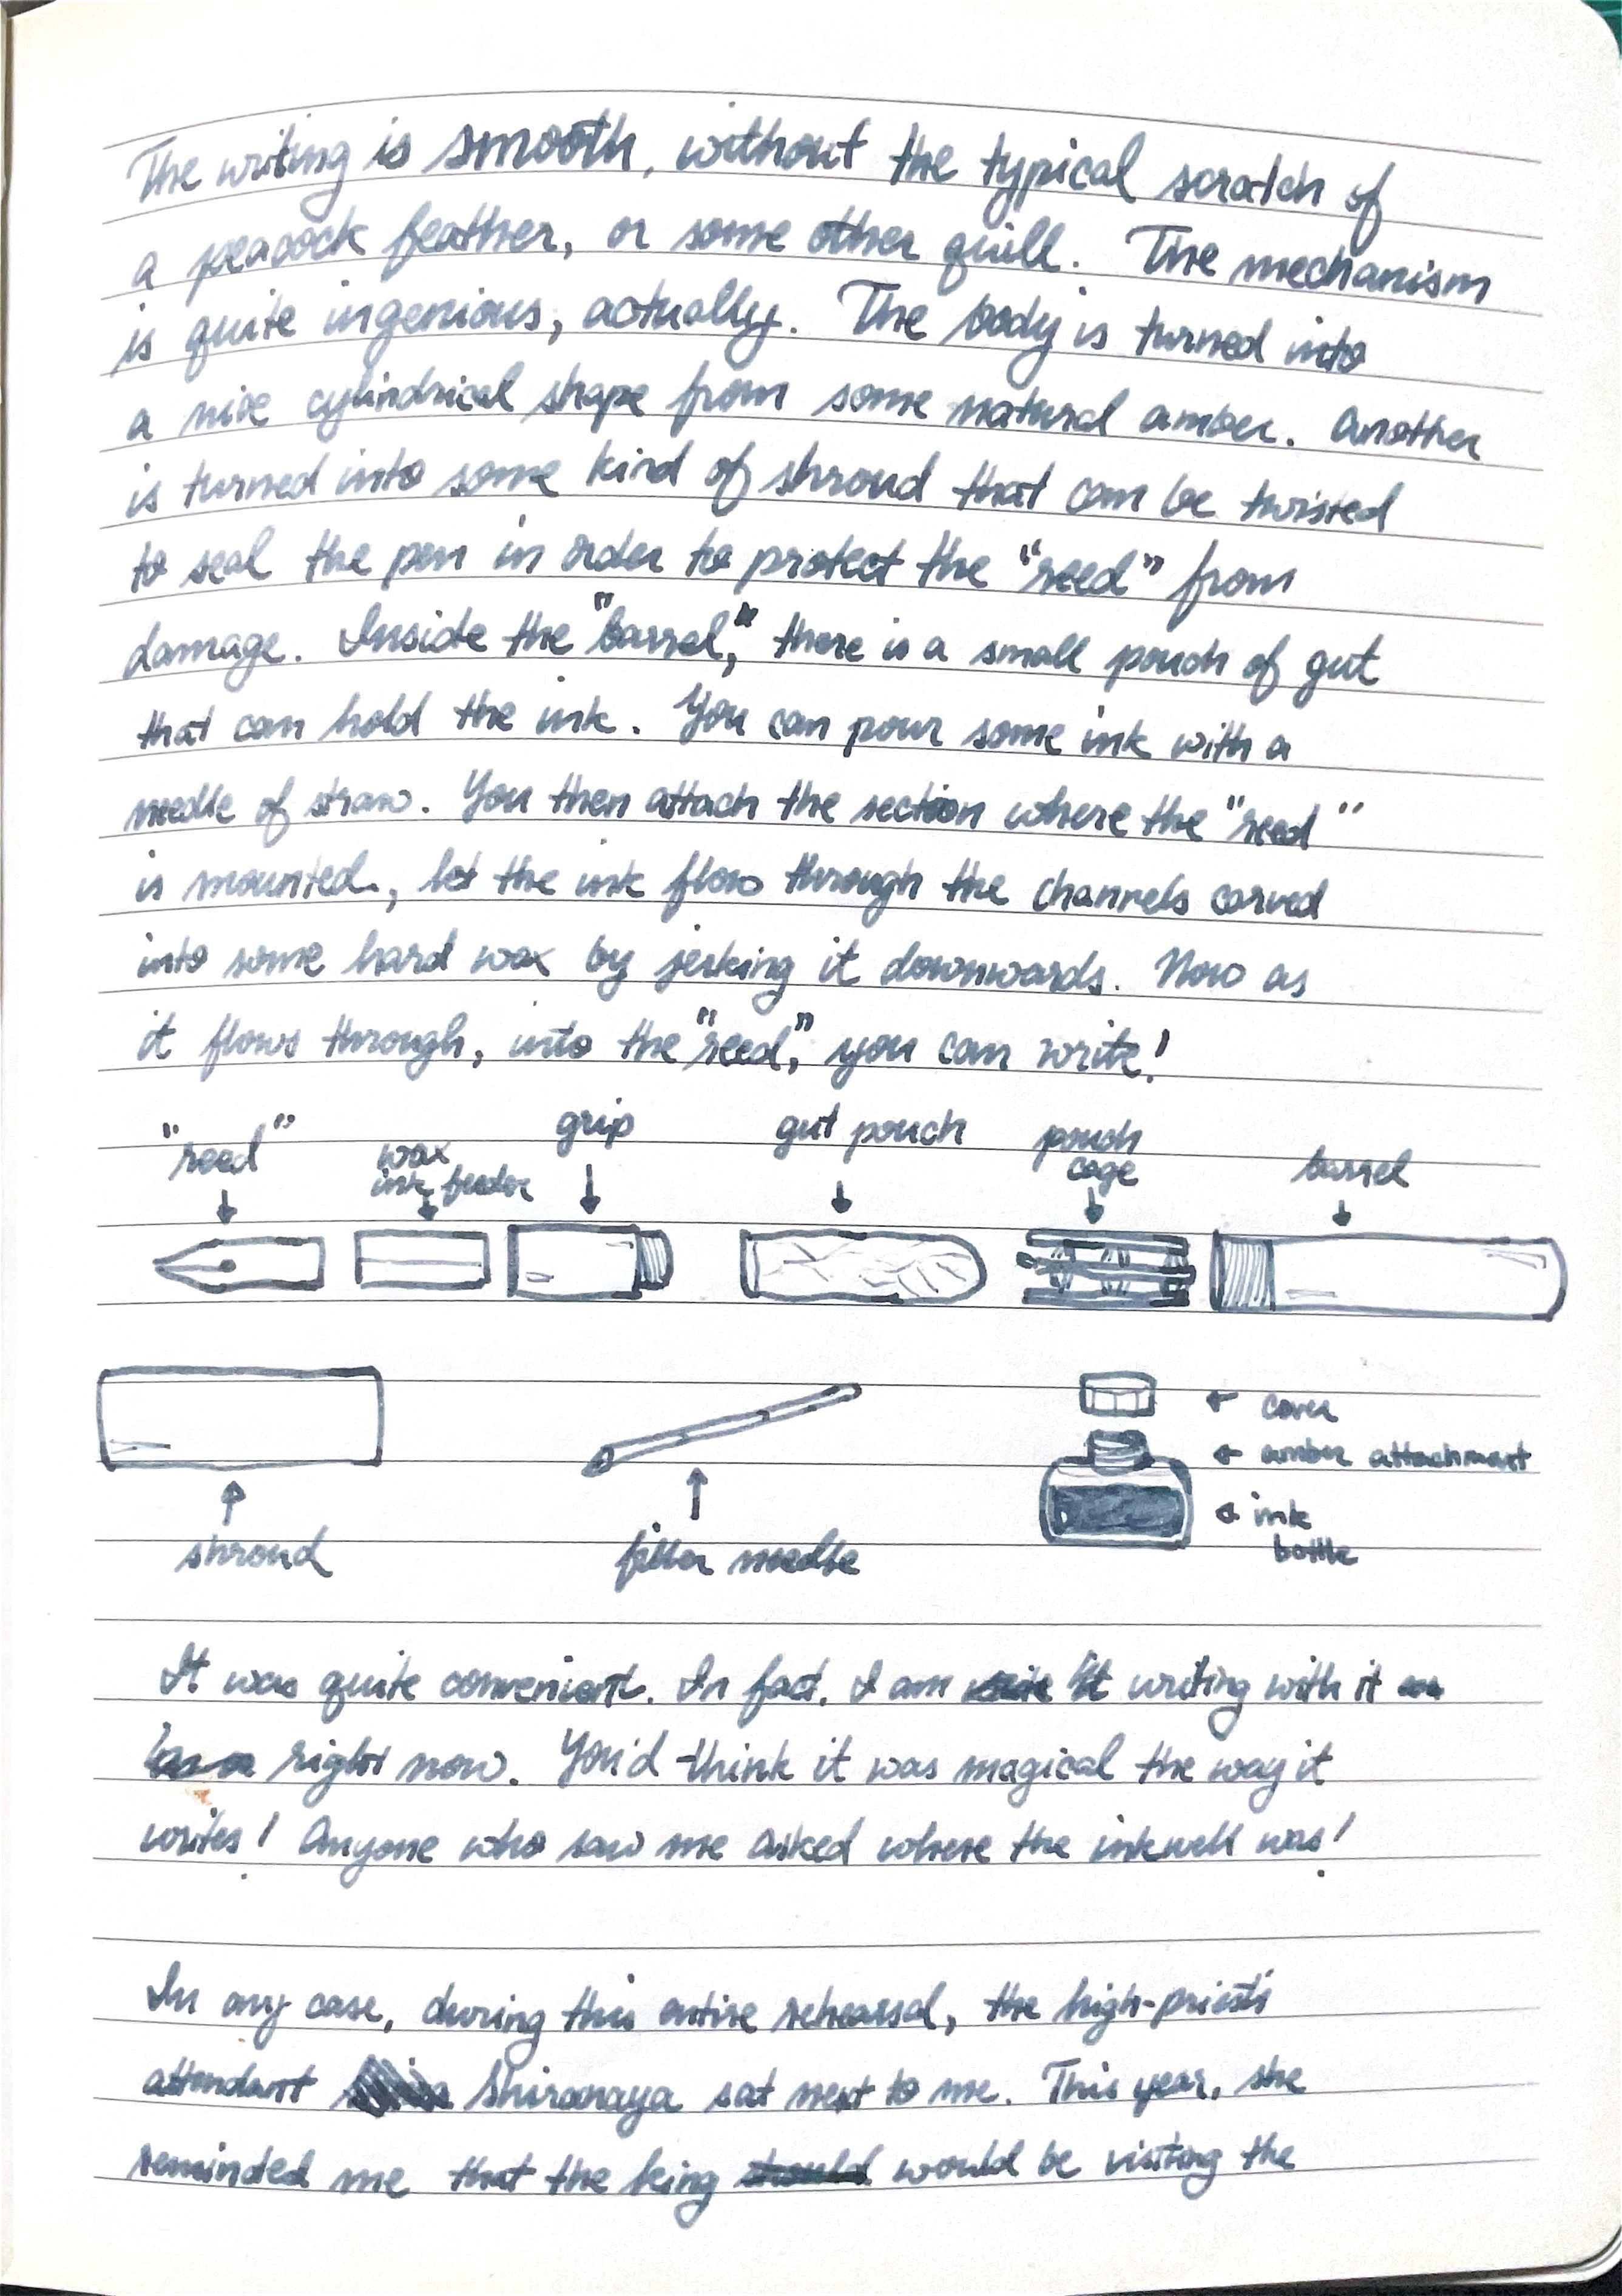 The writing is smooth, without the typical scratch of
a peacock feather, or some other quill. The mechanism
is quite ingenious, actually. The body is turned into
a nice cylindrical shape from some natural amber. Another
is turned into some kind of shroud that can be twisted
to seal the pen in order to protect the "reed" from
damage. Inside the "barrel," there is a small pouch of gut
that can hold the ink. You can pour some ink with a
needle of straw. You then attach the section where the "reed"
is mounted, let the ink flow through the channels carved
into some hard wax by jerking it downwards. Now as
it flows through, into the "reed," you can write!
"reed"
wax
ink feeder
grip
gut pouch
pouch
cage
barrel
cover
amber attachment
ink
bottle
shroud
filler needle
It was quite convenient. In fact, I am writing with it
right now. You'd think it was magical the way it
writes! Anyone who saw me asked where the inkwell was!
In any case, during this entire rehearsal, the high-priest's
attendant Shiranaya sat next to me. This year, she
reminded me that the king would be visiting the